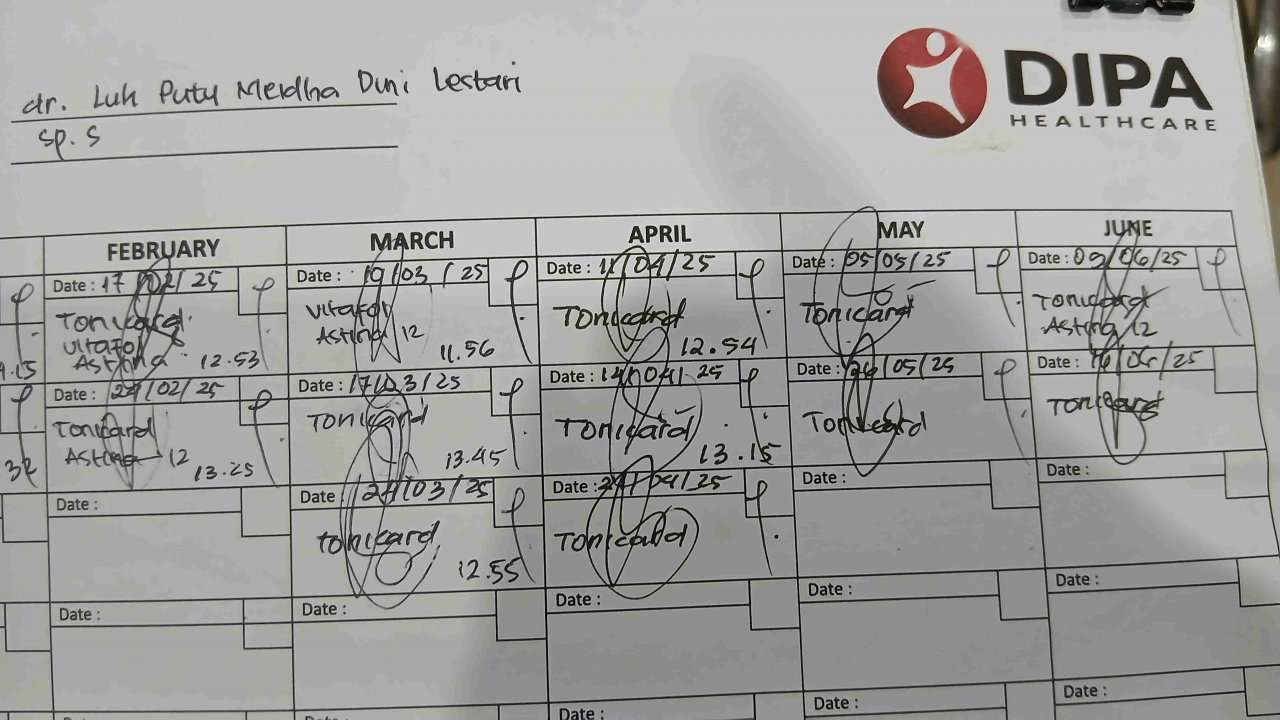 dr. Luh Putu Merdha Dini Lestari
sp. S
DIPA
HEALTHCARE
FEBRUARY
Date : 17/02/25
Tonicard
Vitafol
Asting 12.53
Date : 24/02/25
Tonicard
Asting 12
13.25
Date :
Date :
MARCH
Date : 10/03/25
Vitafol
Asting 12
11.56
Date : 17/03/25
Tonicard
13.45
Date : 24/03/25
Tonicard
12.55
Date :
APRIL
Date : 11/04/25
Tonicard
12.54
Date : 14/04/25
Tonicard
13.15
Date : 24/04/25
Tonicard
Date :
Date :
MAY
Date : 05/05/25
Tonicard
Date : 26/05/25
Tonicard
Date :
Date :
Date :
JUNE
Date : 09/06/25
Tonicard
Asting 12
Date : 16/06/25
Tonicard
Date :
Date :
Date :